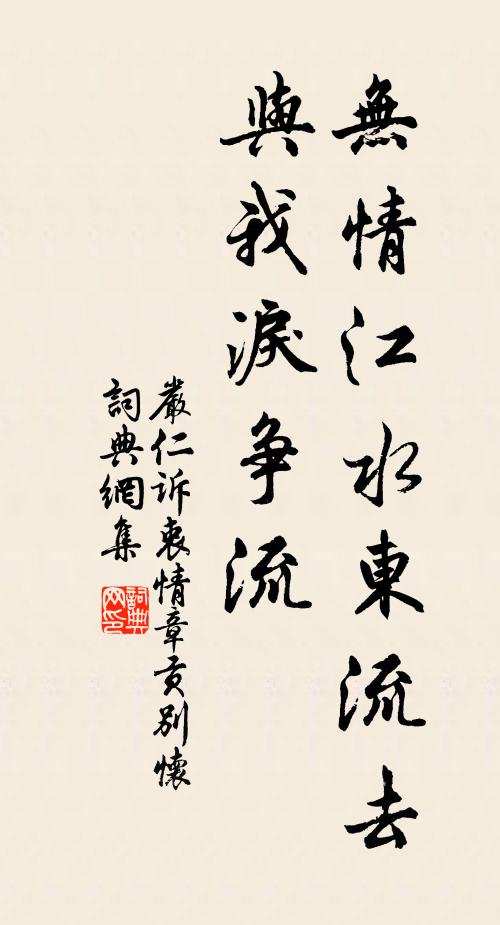 無情江水東流去
與我淚争流
嚴仁訴衷情章貢別懷
詞典網集
詞典网印